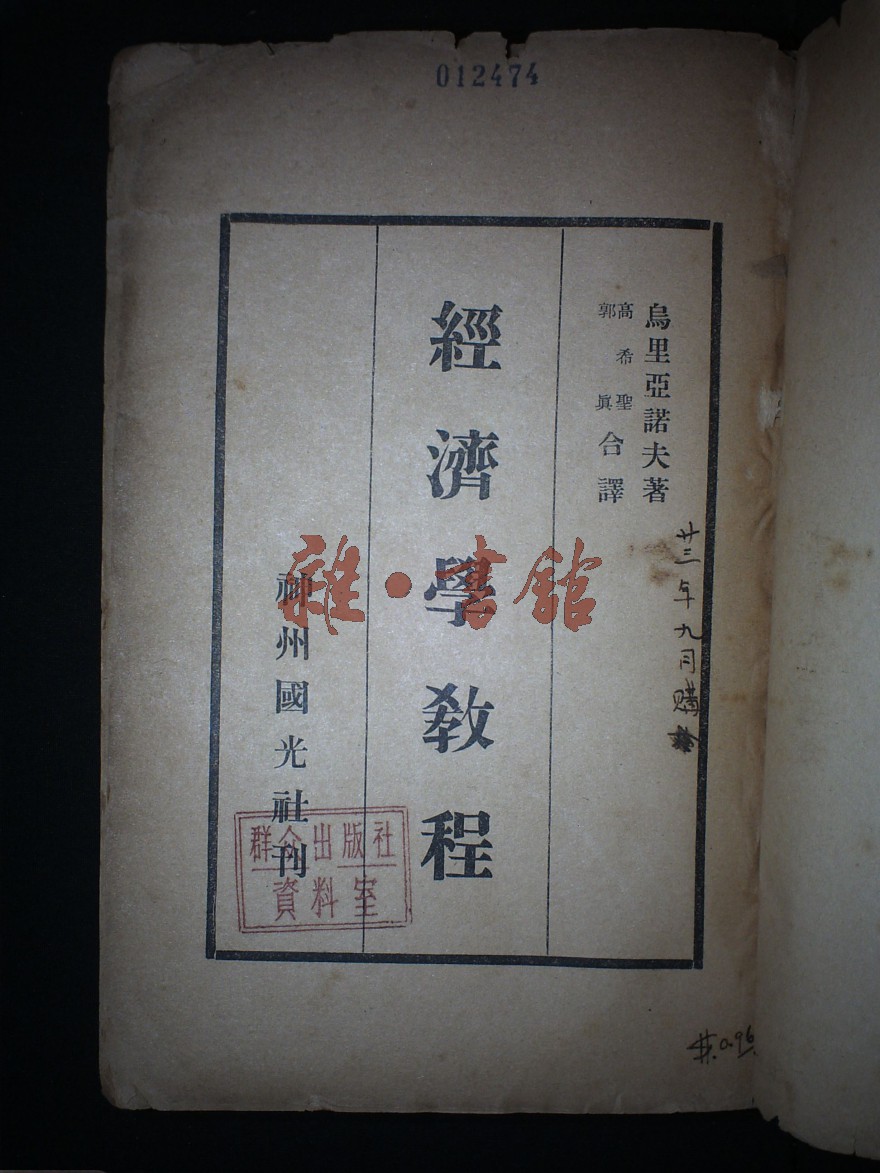 012474
烏里亞諾夫著
高希聖
郭眞
合譯
經濟學敎程
神州國光社刊
廿三年九月購
群众出版社
資料室
雜·書館
$.0.96.